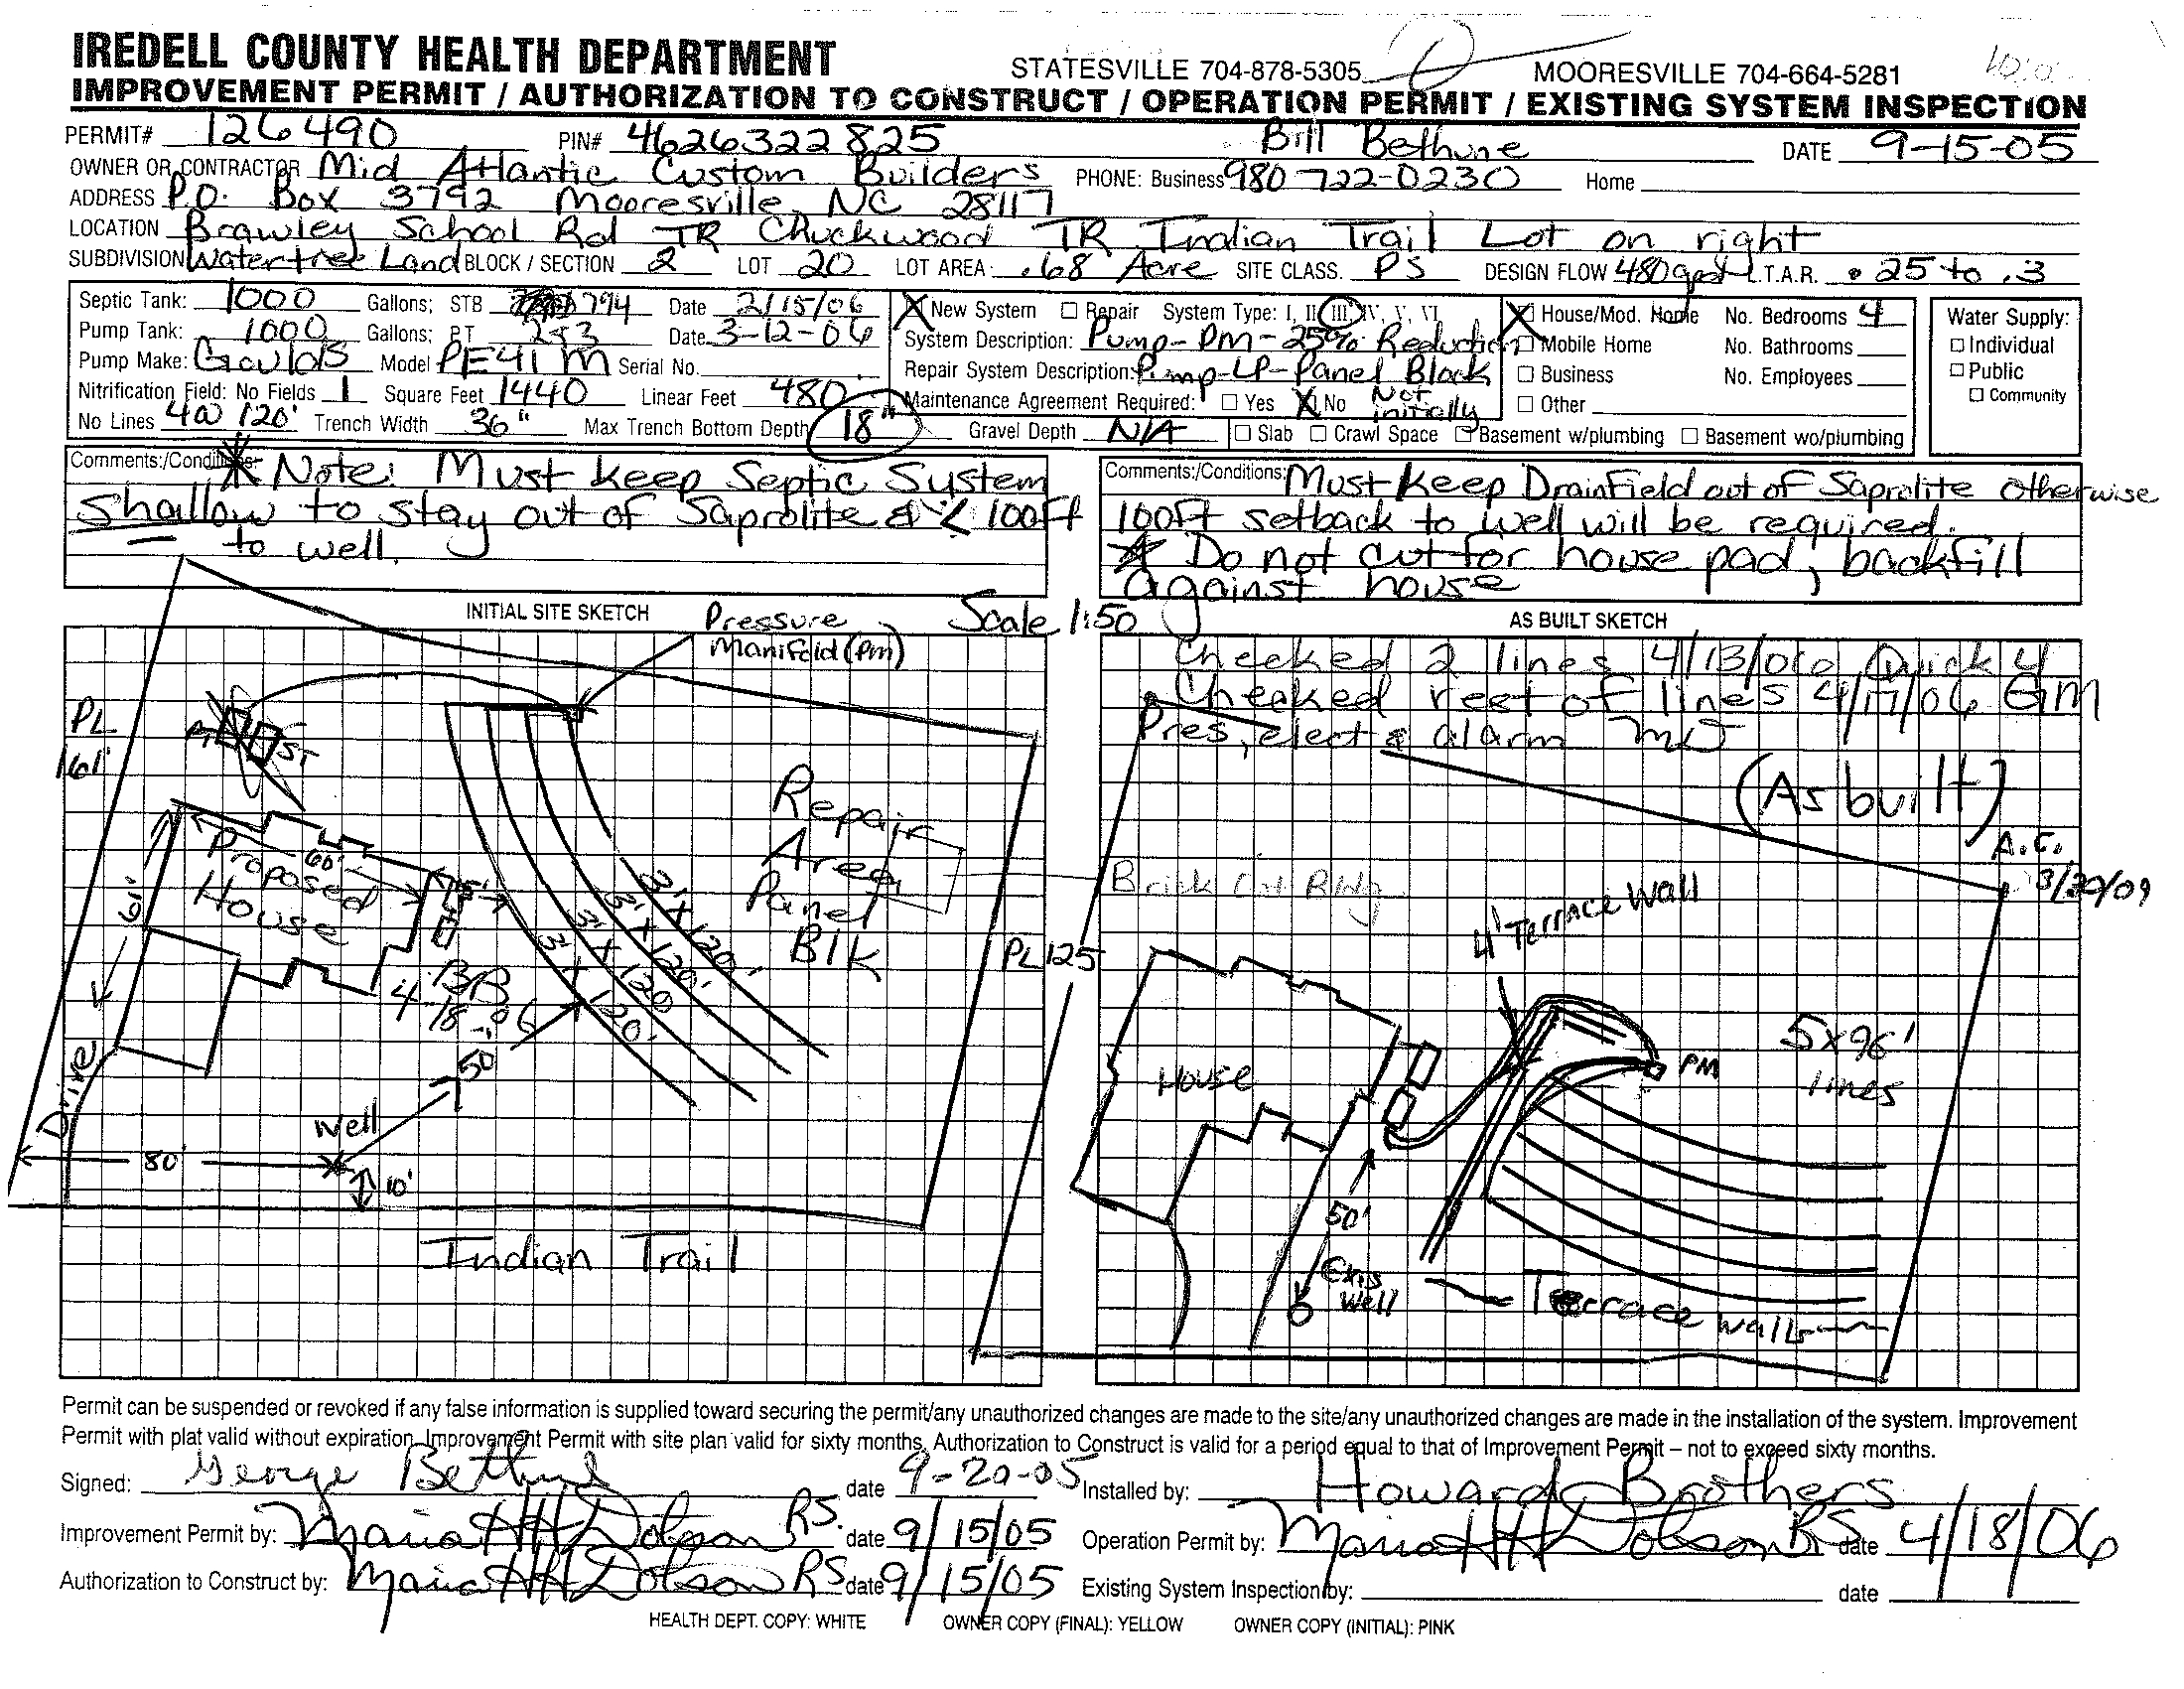 IREDELL COUNTY HEALTH DEPARTMENT STATESVILLE 704-878-5305 MOORESVILLE 704-664-5281
IMPROVEMENT PERMIT / AUTHORIZATION TO CONSTRUCT / OPERATION PERMIT / EXISTING SYSTEM INSPECTION
PERMIT# 126490 PIN# 4626322825 Bill Bethune DATE 9-15-05
OWNER OR CONTRACTOR Mid Atlantic Custom Builders PHONE: Business 980 722-0230 Home
ADDRESS P.O. Box 3792 Mooresville, NC 28117
LOCATION Brawley School Rd TR Chuckwood TR Indian Trail Lot on right
SUBDIVISION Watertree Land BLOCK / SECTION 2 LOT 20 LOT AREA .68 Acre SITE CLASS. PS DESIGN FLOW 480gpd L.T.A.R. .25 to .3
Septic Tank: 1000 Gallons; STB 794 Date 2/15/06
Pump Tank: 1000 Gallons; PT 293 Date 3-12-06
Pump Make: Goulds Model PE41M Serial No.
Nitrification Field: No Fields 1 Square Feet 1440 Linear Feet 480
No Lines 4@120' Trench Width 36" Max Trench Bottom Depth 18" Gravel Depth N/A
X New System Repair System Type: I, II, III, IV, V, VI
System Description: Pump-PM-25% Reduction
Repair System Description: Pump-LP-Panel Block
Maintenance Agreement Required: Yes X No Not initially
X House/Mod. Home No. Bedrooms 4
Mobile Home No. Bathrooms
Business No. Employees
Other
Slab Crawl Space Basement w/plumbing Basement wo/plumbing
Water Supply:
Individual
Public
Community
Comments:/Conditions: * Note: Must keep Septic System
Shallow to stay out of Saprolite & < 100ft
to well.
Comments:/Conditions: Must Keep Drainfield out of Saprolite otherwise
100ft setback to well will be required.
* Do not cut for house pad, backfill
against house
INITIAL SITE SKETCH
Pressure
Manifold (pm)
Scale 1:50
PL
161'
PT
ST
Proposed
House
60'
61'
15'
BB
4-18-06
3' x 120'
3' x 120'
3' x 120'
3' x 120'
Repair
Area
Panel
Blk
PL 125
50'
Well
Drive
80'
10'
Indian Trail
AS BUILT SKETCH
Checked 2 lines 4/13/06 Quick 4
Checked rest of lines 4/17/06 GM
Pres, elect & alarm MW
(As built)
3/30/09
4' Terrace Wall
House
PM
5x96'
lines
50'
Exis
Well
Terrace walls
Permit can be suspended or revoked if any false information is supplied toward securing the permit/any unauthorized changes are made to the site/any unauthorized changes are made in the installation of the system. Improvement
Permit with plat valid without expiration. Improvement Permit with site plan valid for sixty months. Authorization to Construct is valid for a period equal to that of Improvement Permit – not to exceed sixty months.
Signed: George Bethune date 9-20-05 Installed by: Howard Brothers
Improvement Permit by: Maria H Dobson RS. date 9/15/05 Operation Permit by: Maria H Dobson RS date 4/18/06
Authorization to Construct by: Maria H Dobson RS date 9/15/05 Existing System Inspection by: date
HEALTH DEPT. COPY: WHITE OWNER COPY (FINAL): YELLOW OWNER COPY (INITIAL): PINK